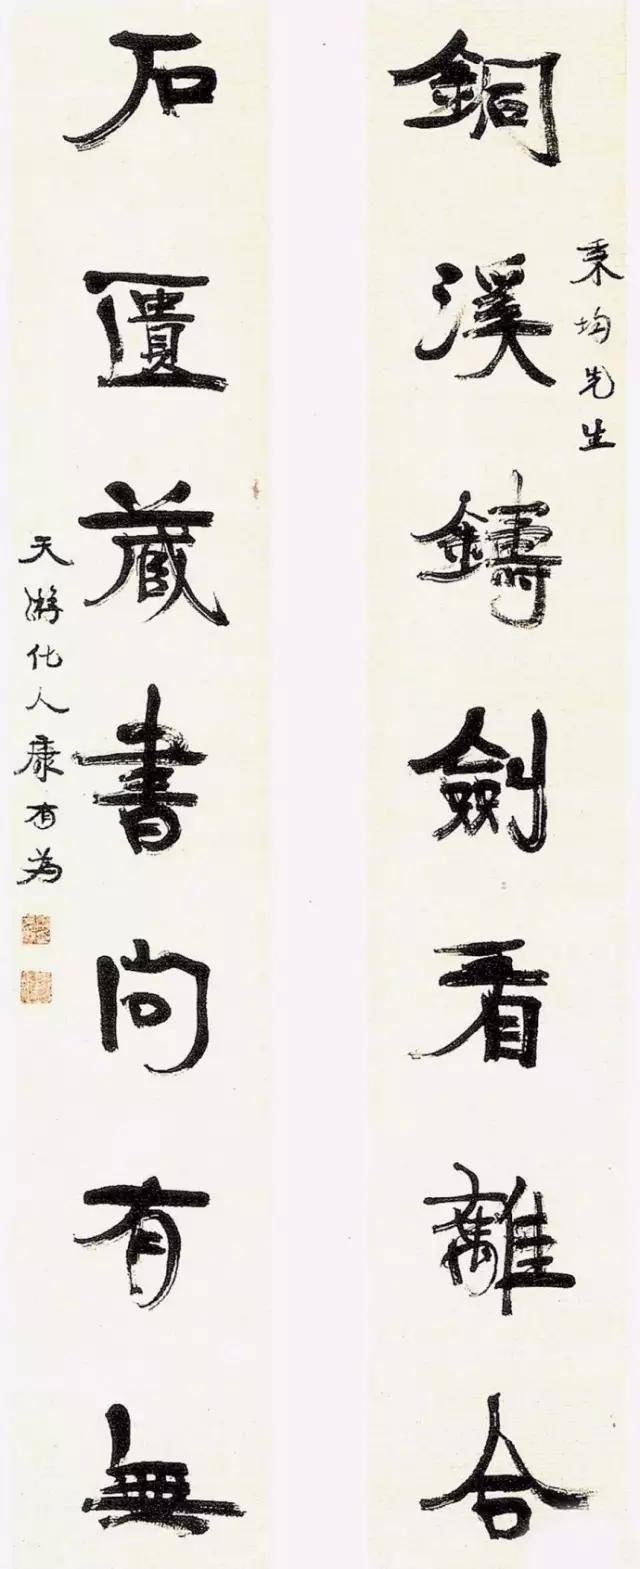 秉均先生
銅溪鑄劍看離合
石匱藏書問有無
天游化人康有為